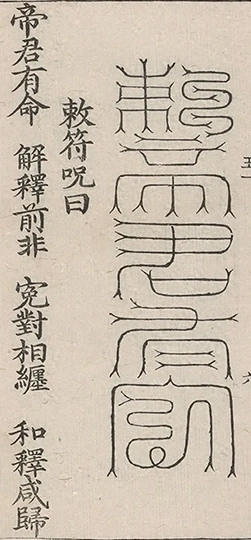 敕符呪曰
帝君有命 解釋前非 寃對相纏 和釋咸歸